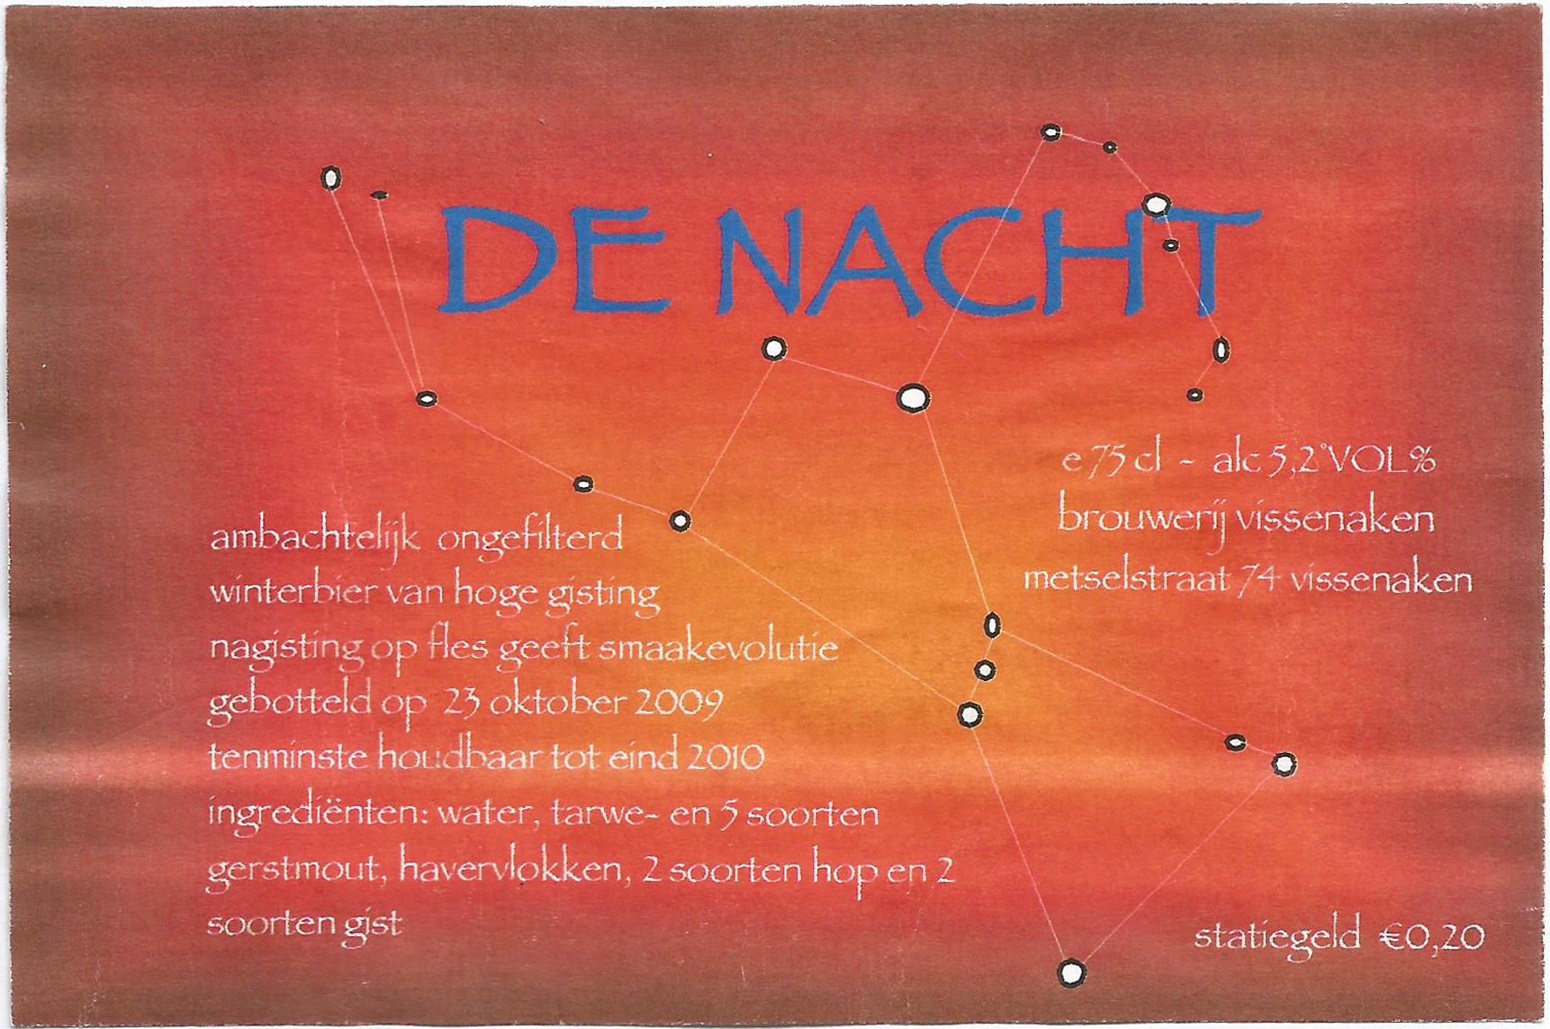 DE NACHT
e 75 cl - alc 5,2°VOL%
brouwerij vissenaken
metselstraat 74 vissenaken
ambachtelijk ongefilterd
winterbier van hoge gisting
nagisting op fles geeft smaakevolutie
gebotteld op 23 oktober 2009
tenminste houdbaar tot eind 2010
ingrediënten: water, tarwe- en 5 soorten
gerstmout, havervlokken, 2 soorten hop en 2
soorten gist
statiegeld €0,20